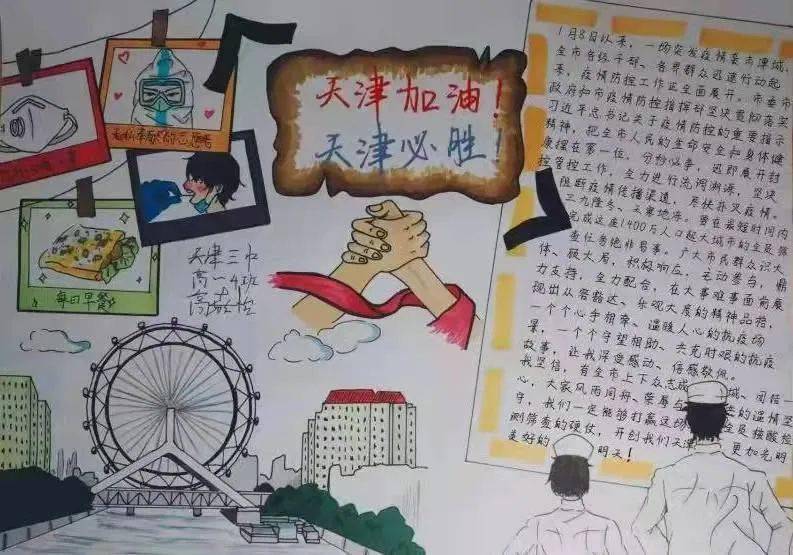 天津加油！
天津必胜！
每日早餐
天津三中
高一4班
1月8日以来，一场突发疫情袭击津城，
全市各级干部、各界群众迅速行动起
来，疫情防控工作正全面展开。市委市
政府和市疫情防控指挥部坚决贯彻落实
习近平总书记关于疫情防控的重要指示
精神，把全市人民的生命安全和身体健
康摆在第一位，分秒必争，迅即展开封
控管控工作，全力进行流调溯源，坚决
阻断疫情传播渠道，尽快扑灭疫情。
三九隆冬，天寒地冻。要在最短时间内
完成这座1400万人口超大城市的全员筛
查任务绝非易事。广大市民群众识大
体、顾大局，积极响应，主动参与，鼎
力支持，全力配合，在大事难事面前展
现出从容豁达、乐观大度的精神品格，
一个个心手相牵、温暖人心的抗疫场
景，一个个守望相助、共克时艰的抗疫
故事，让我深受感动、倍感敬佩。
我坚信，有全市上下众志成城、团结一
心，大家风雨同舟、荣辱与 的温情坚
守，我们一定能够打赢这场 全员核酸检
测筛查的硬仗，开创我们天津 更加光明
美好的 明天！